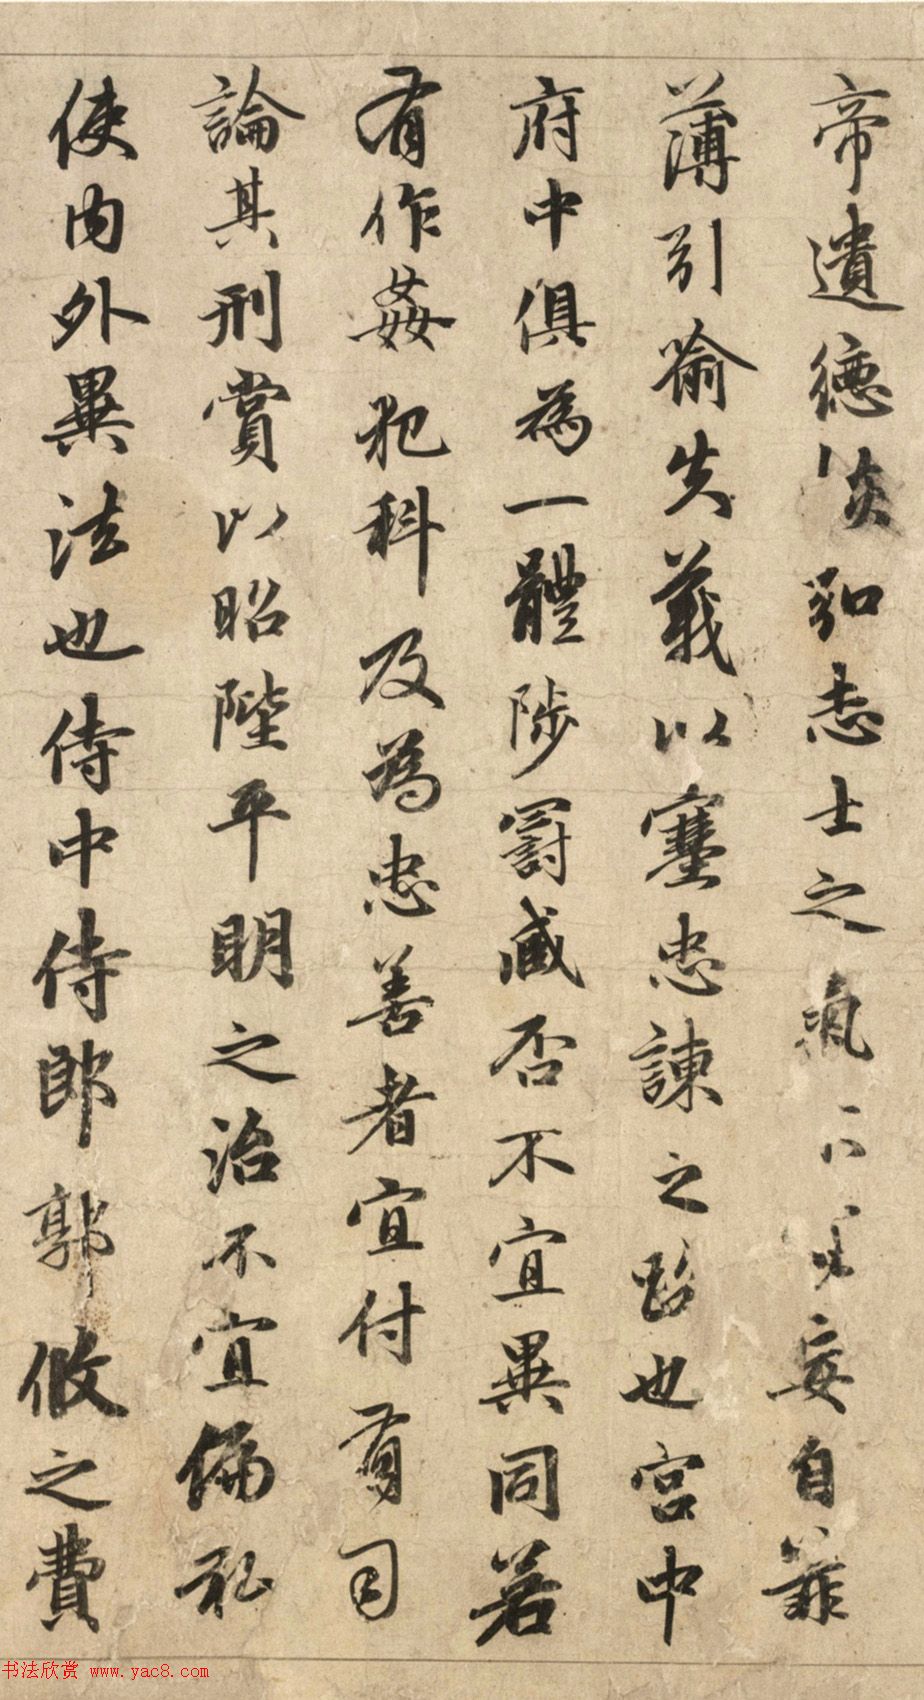 帝遺德恢弘志士之氣不宜妄自菲
薄引喻失義以塞忠諫之路也宮中
府中俱為一體陟罰臧否不宜異同若
有作姦犯科及為忠善者宜付有司
論其刑賞以昭陛平明之治不宜偏私
使內外異法也侍中侍郎郭攸之費
书法欣赏 www.yac8.com